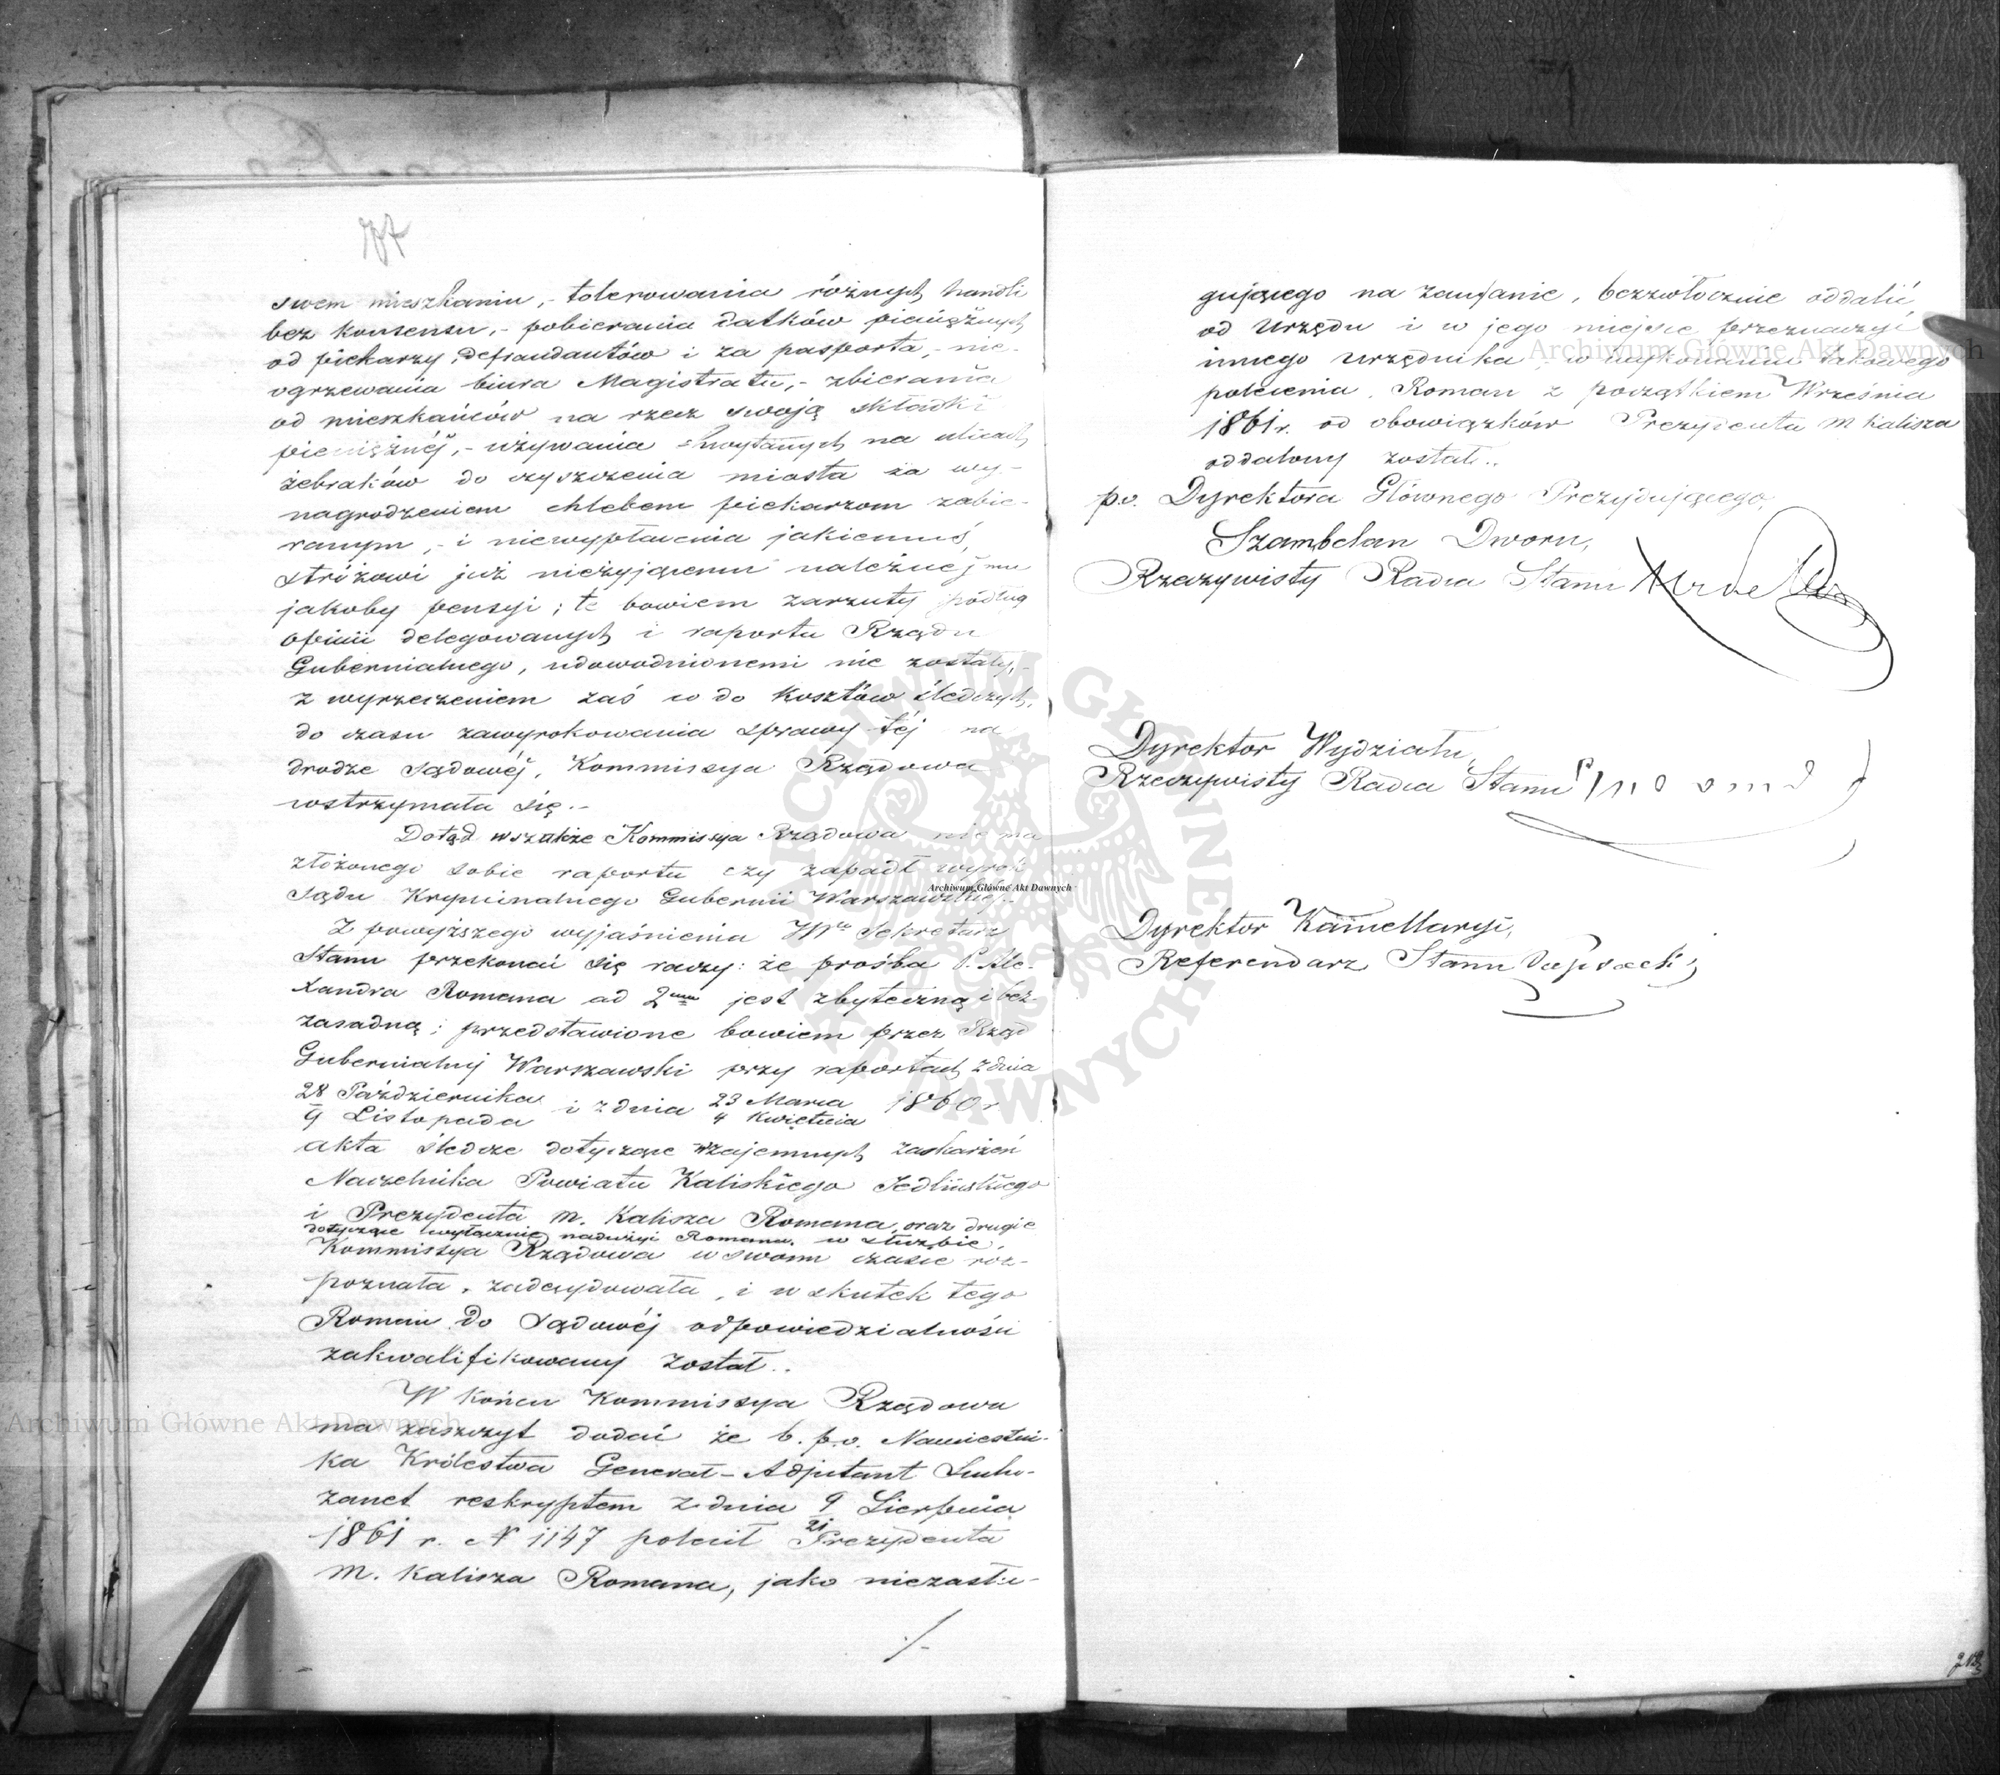 swem mieszkaniu, - tolerowania różnych handli
bez konsensu, - pobierania datków pieniężnych
od piekarzy, defraudantów i za pasporta, - nie-
ogrzewania biura Magistratu, - zbierania
od mieszkańców na rzecz swoją składki
pieniężnéj, - używania chwytanych na ulicach
żebraków do czyszczenia miasta za wy-
nagrodzeniem chlebem piekarzom zabie-
ranym, - i niewypłacenia jakiemuś,
stróżowi już nieżyjącemu należnéj mu
jakoby pensyi; te bowiem zarzuty podług
opinii delegowanych i raportu Rządu
Gubernialnego, udowodnionemi nie zostały, -
z wyrzeczeniem zaś co do kosztów śledczych,
do czasu zawyrokowania sprawy téj na
drodze sądowéj, Kommissya Rządowa
wstrzymała się. -
Dotąd wszakże Kommissya Rządowa nie ma
złożonego sobie raportu czy zapadł wyrok
Sądu Kryminalnego Gubernii Warszawskiéj. -
Z powyższego wyjaśnienia JW Sekretarz
Stanu przekonać się raczy: że prośba P. Ale-
xandra Romana ad 2 jest zbyteczną i bez-
zasadną; przedstawione bowiem przez Rząd
Gubernialny Warszawski przy raportach z dnia
28 Października / 9 Listopada i z dnia 23 Marca / 4 Kwietnia 1860 r
akta śledcze dotyczące wzajemnych zaskarżeń
Naczelnika Powiatu Kaliskiego Jedlińskiego
i Prezydenta m. Kalisza Romana, oraz drugie
dotyczące wyłącznie nadużyć Romana w służbie,
Kommissya Rządowa w swoim czasie roz-
poznała, zadecydowała, i w skutek tego
Roman do sądowéj odpowiedzialności
zakwalifikowany został..
W końcu Kommissya Rządowa
ma zaszczyt dodać że b. p.o. Namiestni-
ka Królestwa Generał-Adjutant Sucho-
zanet reskryptem z dnia 9/21 Sierpnia
1861 r. N 1147 polecił Prezydenta
m. Kalisza Romana, jako niezasłu-
./-
gującego na zaufanie, bezzwłocznie oddalić
od Urzędu i w jego miejsce przeznaczyć
innego urzędnika, w wykonaniu takowego
polecenia, Roman z początkiem Września
1861 r. od obowiązków Prezydenta m Kalisza
oddalony został..
p.o. Dyrektora Głównego Prezydującego,
Szambelan Dworu,
Rzeczywisty Radca Stanu
Dyrektor Wydziału,
Rzeczywisty Radca Stanu
Dyrektor Kancellaryi,
Referendarz Stanu
Archiwum Główne Akt Dawnych
Archiwum Główne Akt Dawnych
Archiwum Główne Akt Dawnych
ARCHIWUM GŁÓWNE AKT DAWNYCH